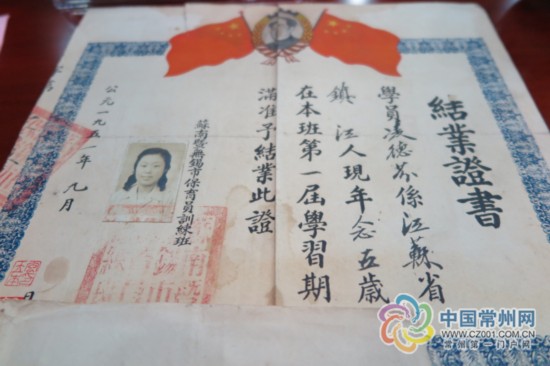 結業證書
學員凌德芬係江蘇省
鎮江人現年念五歲
在本班第一屆學習期
滿准予結業此證
蘇南暨無錫市保育員訓練班
公元一九五一年九月
日
中国常州网
WWW.CZ001.COM.CN
常州第一门户网